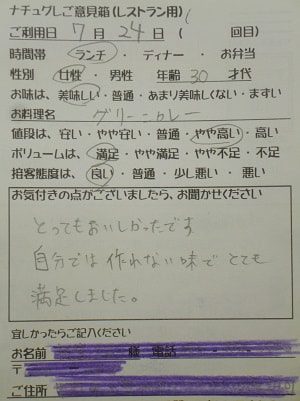 ナチュグレご意見箱(レストラン用)
ご利用日 7月 24日 ( 回目)
時間帯 ランチ ・ ディナー ・ お弁当
性別 女性 ・ 男性 年齢 30 才代
お味は、美味しい・普通・あまり美味しくない・まずい
お料理名 グリーンカレー
値段は、安い・やや安い・普通・やや高い・高い
ボリュームは、満足・やや満足・やや不足・不足
接客態度は、良い・普通・少し悪い・悪い
お気付きの点がございましたら、お聞かせください
とってもおいしかったです
自分では作れない味で とても
満足しました。
宜しかったらご記入ください
お名前 様 電話 - -
〒
ご住所